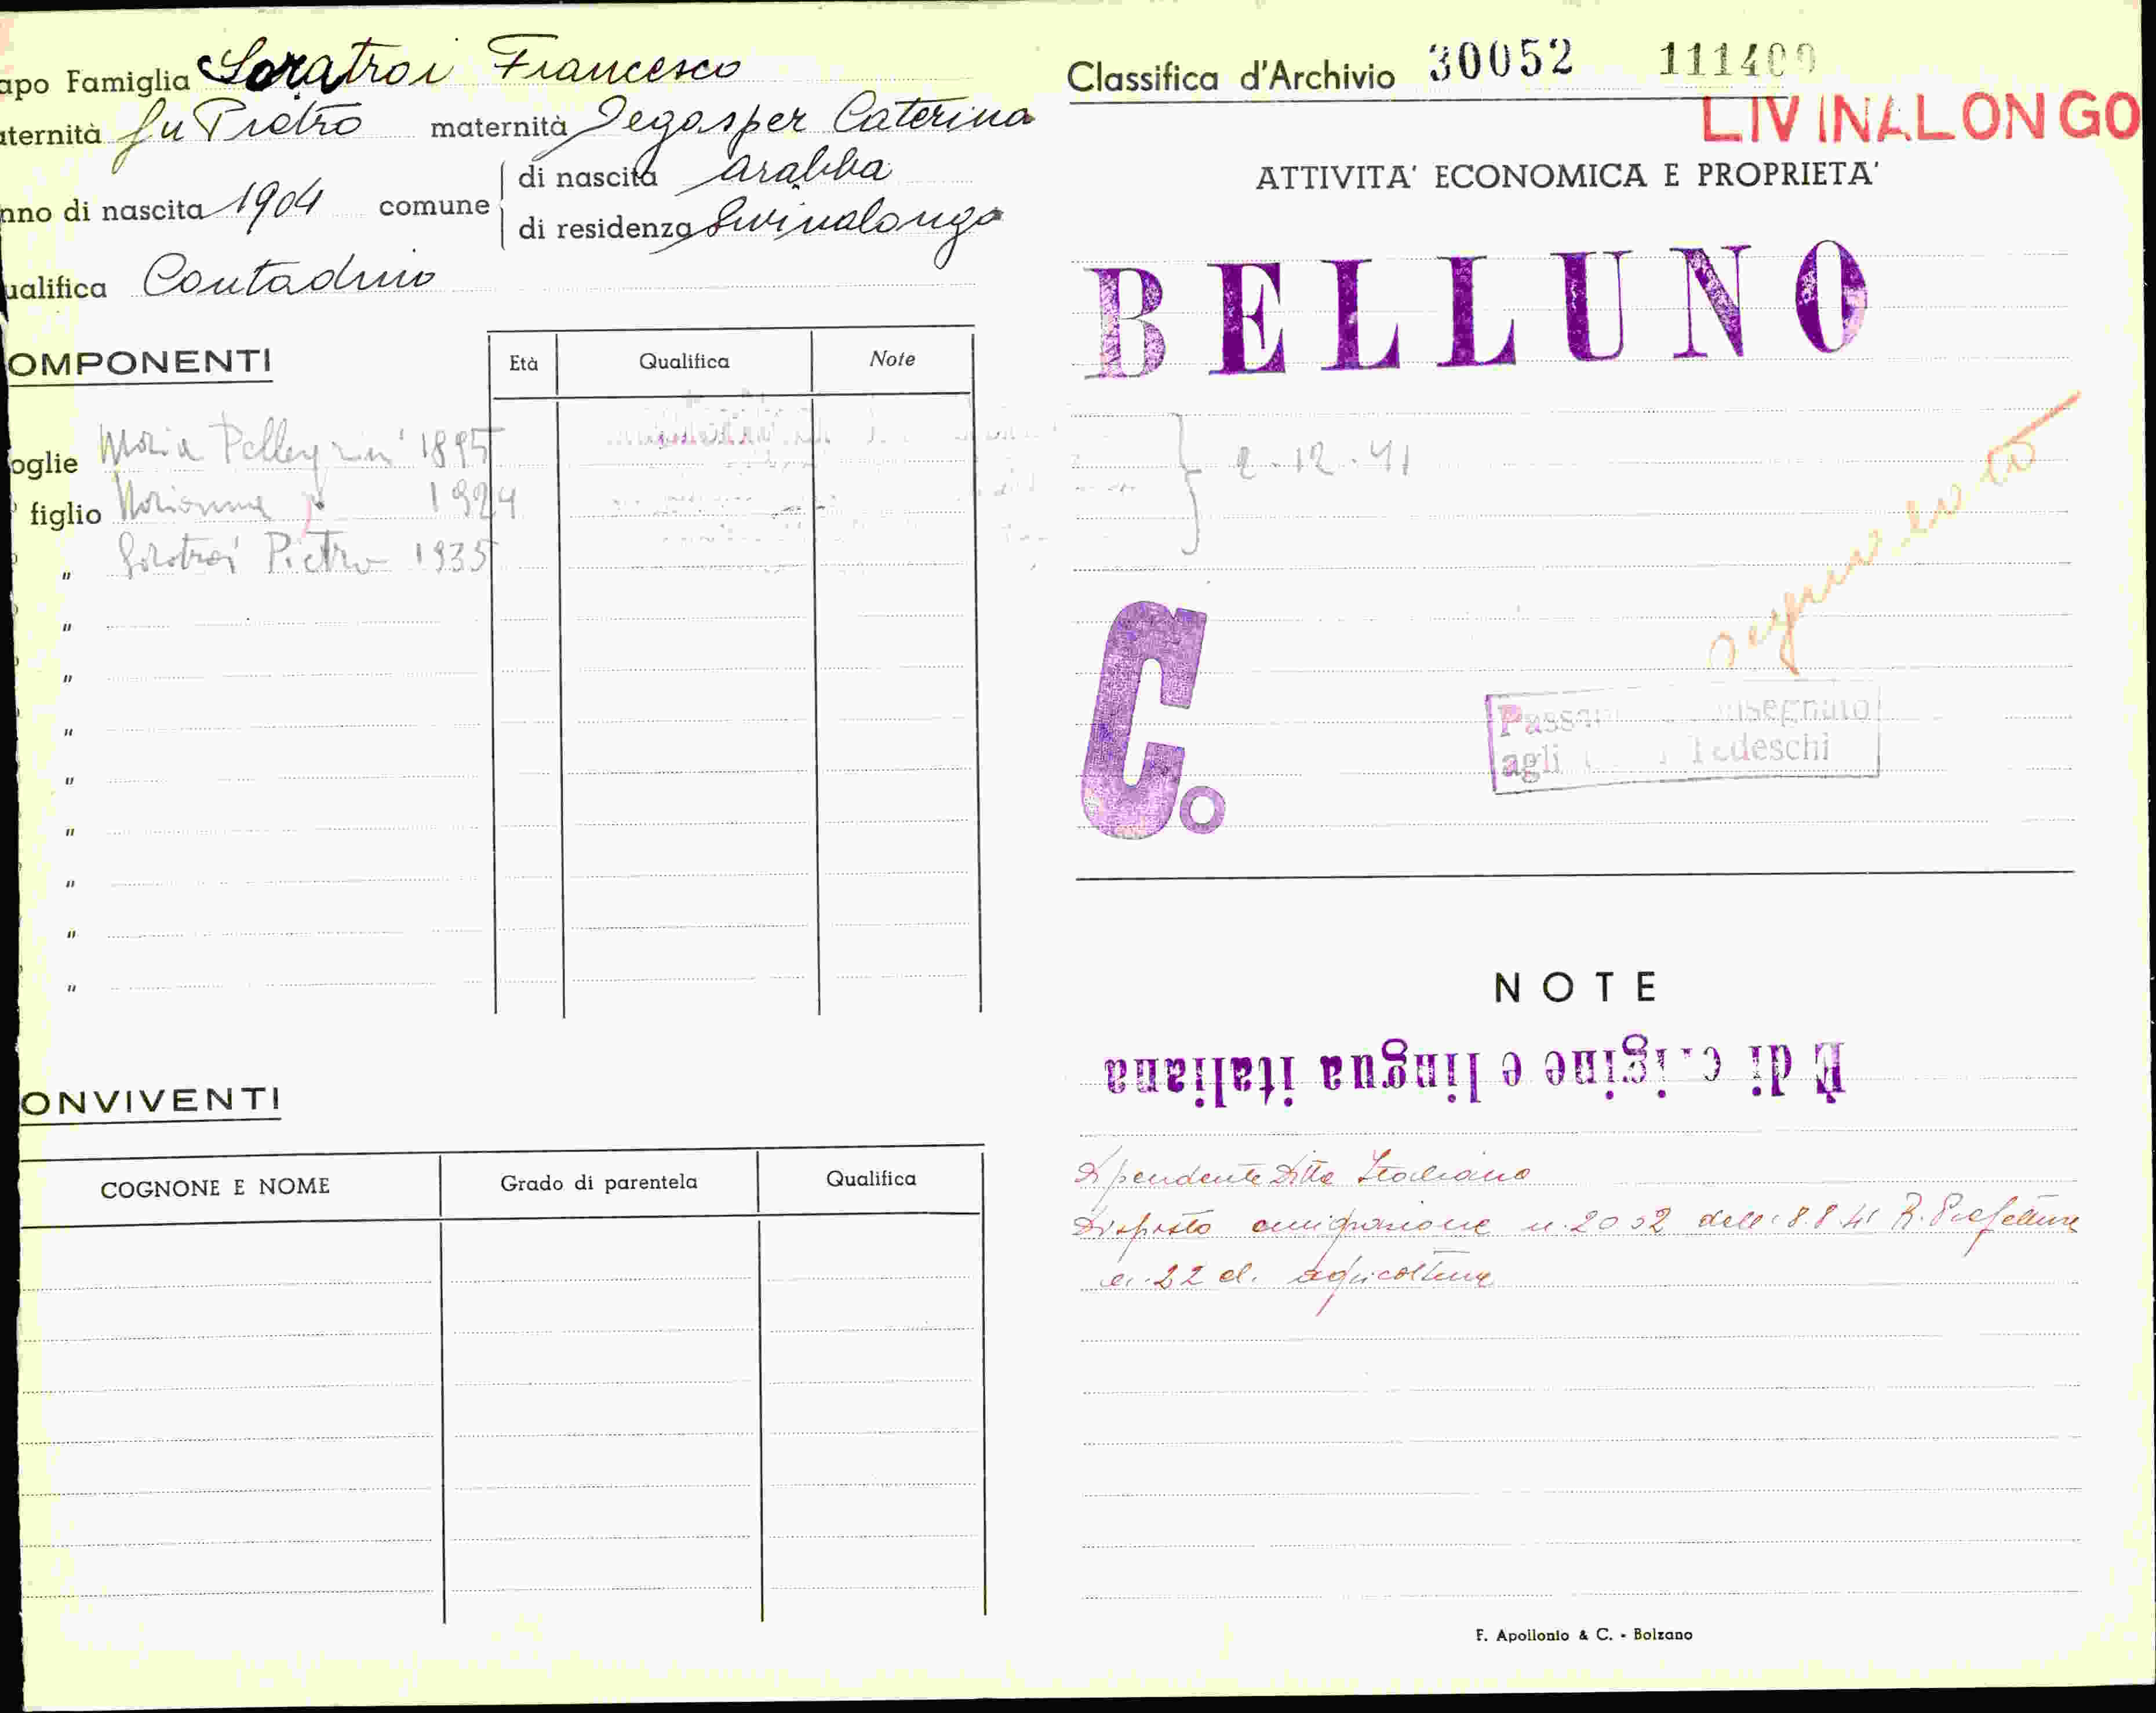 apo Famiglia Soratroi Francesco
aternità fu Pietro maternità Degasper Caterina
nno di nascita 1904 comune
di nascita Arabba
di residenza Livinalongo
ualifica Contadino
OMPONENTI
Età Qualifica Note
oglie Maria Pellegrini 1895
figlio Marianna 1924
" Soratroi Pietro 1935
"
"
"
"
"
"
"
"
ONVIVENTI
COGNONE E NOME Grado di parentela Qualifica
Classifica d'Archivio 30052 111400
LIVINALONGO
ATTIVITA' ECONOMICA E PROPRIETA'
BELLUNO
2.12.41
C.
agli Tedeschi
NOTE
È di origine e lingua italiana
Dipendente Ditta Italiana
Disposto emigrazione n. 2052 dell' 8.8.41 R. Prefettura
agricoltura
F. Apollonio & C. - Bolzano